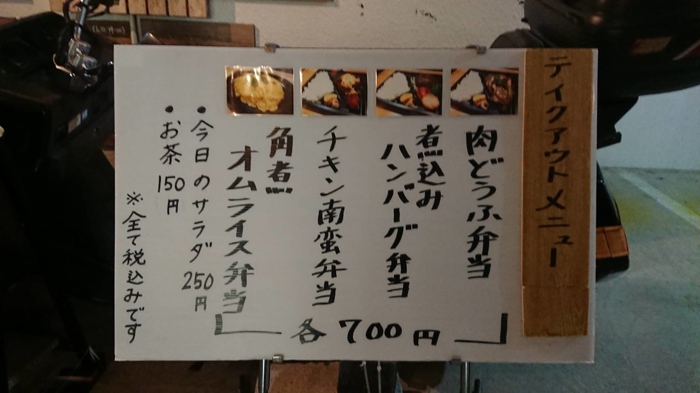 テイクアウトメニュー
肉どうふ弁当
煮込み
ハンバーグ弁当
チキン南蛮弁当
角煮
オムライス弁当
各700円
• 今日のサラダ 250円
• お茶 150円
※全て税込みです